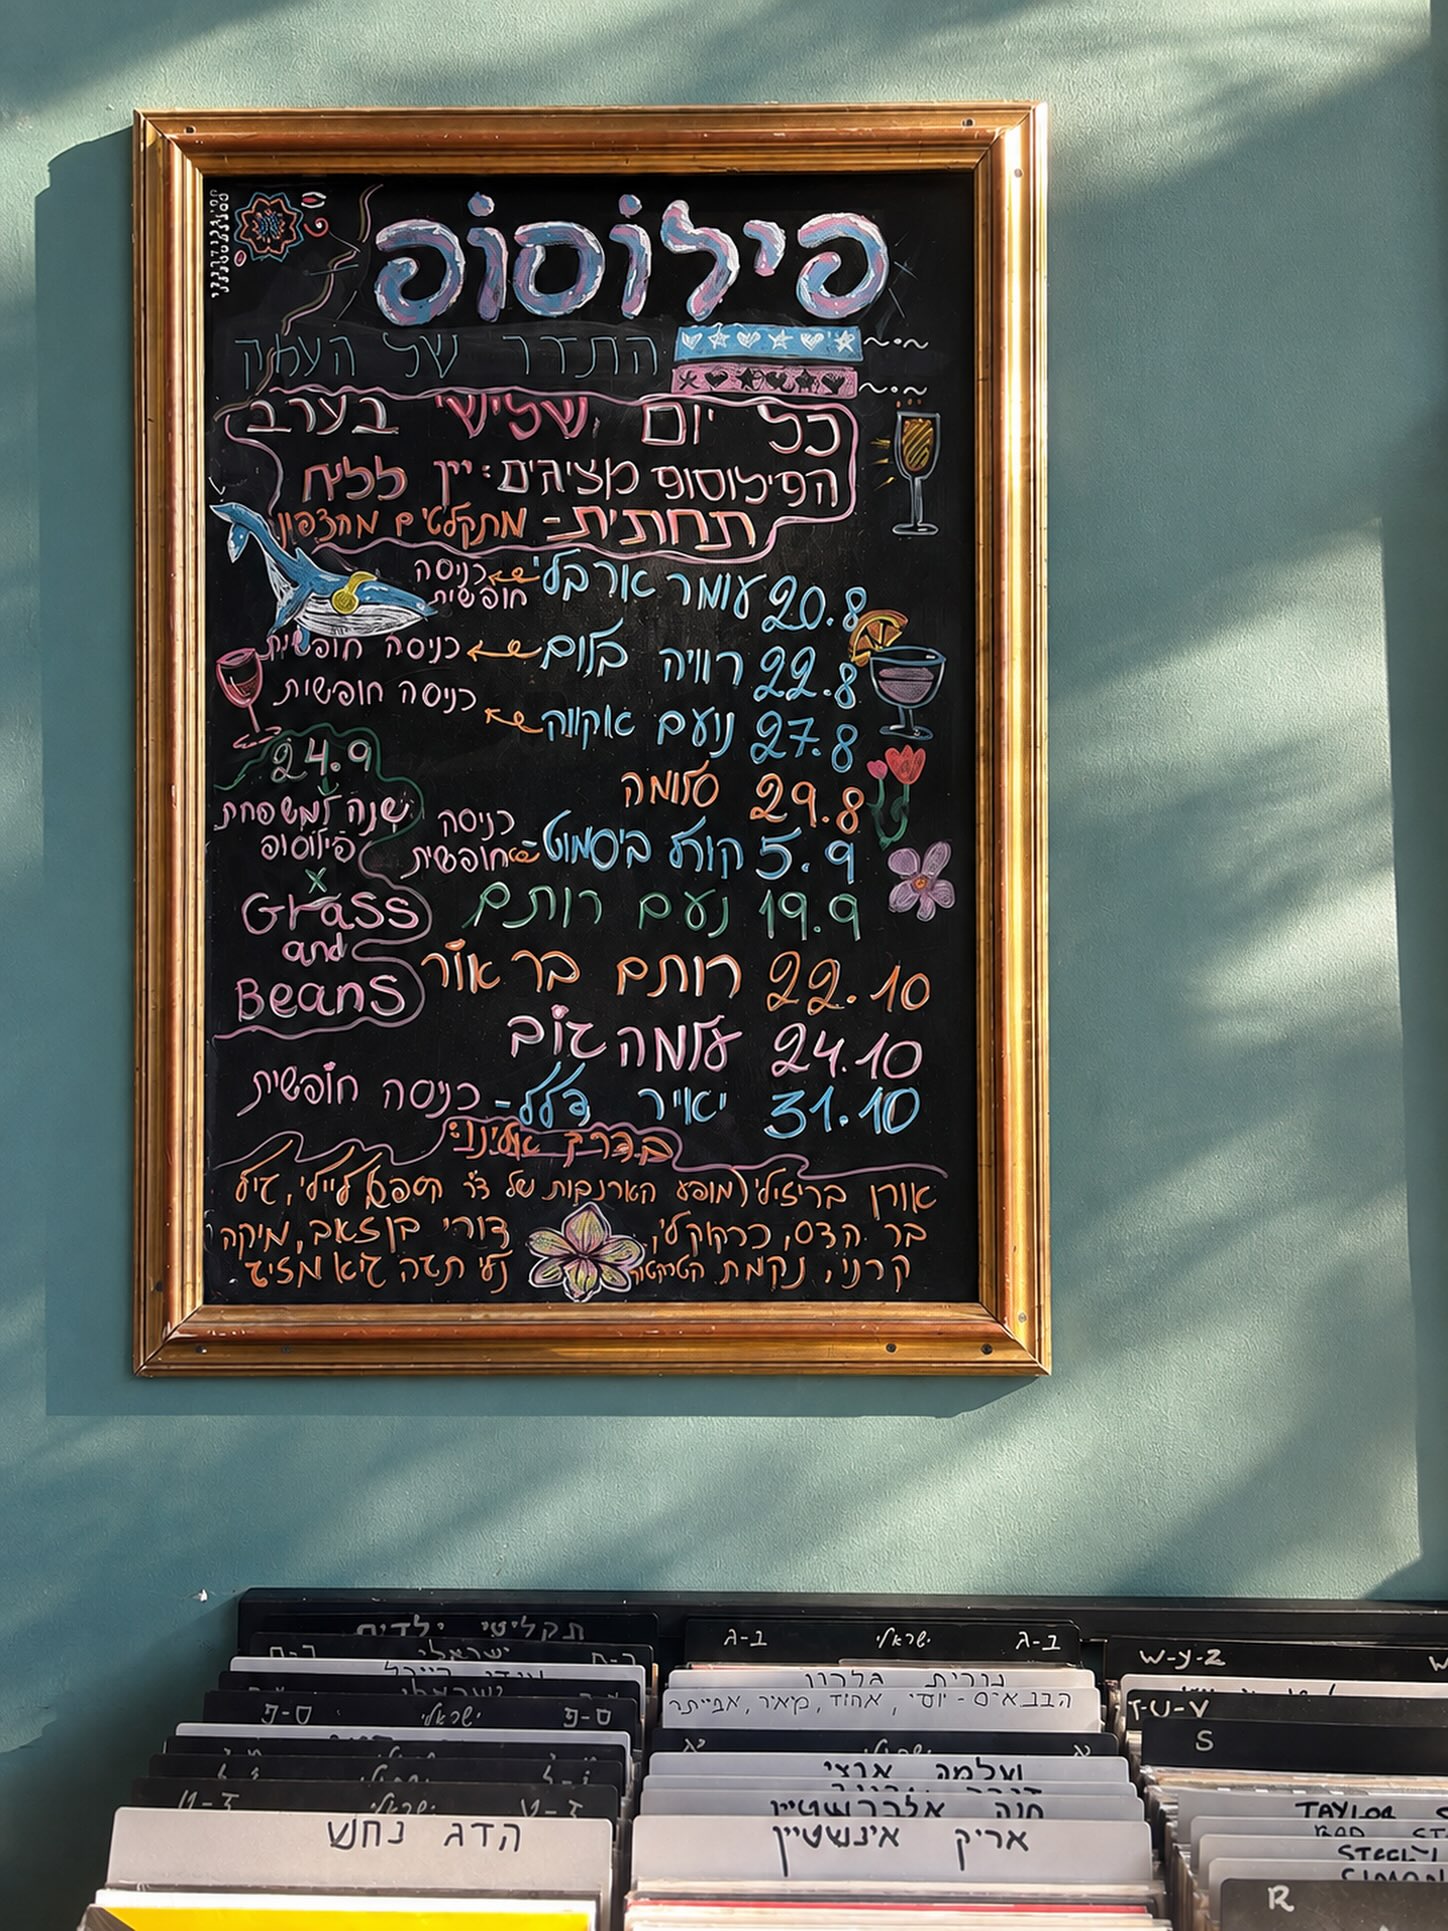 פילוסופ
התדר של העמק
כל יום שלישי בערב
הפילוסופ מציגים: יין לליח
תחתית - מתקלטים מהצפון
20.8 עומר ארבל כניסה חופשית
22.8 רוויה בלום כניסה חופשית
27.8 נועם אקווה כניסה חופשית
29.8 סלומה
5.9 קורל ביסמוט כניסה חופשית
19.9 נעם רותם
22.10 רותם בר אור
24.10 עלמה גוב
31.10 יאיר דלל - כניסה חופשית
24.9
שנה למשפחת
פילוסופ
x
Grass
and
Beans
בדרך אלינו:
אורן ברזילי (מופע הארנבות של ד"ר קספר), ליילי, גיל
בר הדס, כרקוקלי, דורי בן זאב, מיקה
קרני, נקמת הטרקטור, נעלי תגה גיא מזיג
תקליטי ילדים
ישראלי
ס-פ ישראלי ס-פ
ישראלי
הדג נחש
ב-ג ישראלי ב-ג
נורית גלרון
הבנאים - יוסי, אהוד, מאיר, אביתר
שלמה ארצי
חנה אלברשטיין
אריק איינשטיין
W-Y-Z
T-U-V
S
TAYLOR
R